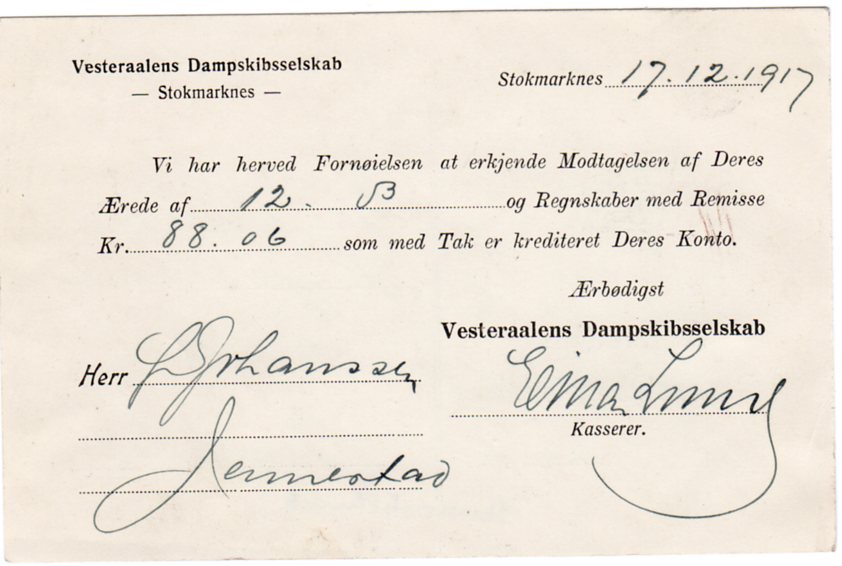 Vesteraalens Dampskibsselskab
— Stokmarknes —
Stokmarknes 17.12.1917
Vi har herved Fornøielsen at erkjende Modtagelsen af Deres
Ærede af 12. og Regnskaber med Remisse
Kr. 88.06 som med Tak er krediteret Deres Konto.
Ærbødigst
Vesteraalens Dampskibsselskab
Herr Johanssen
Einar Lund
Kasserer.
Jennestad